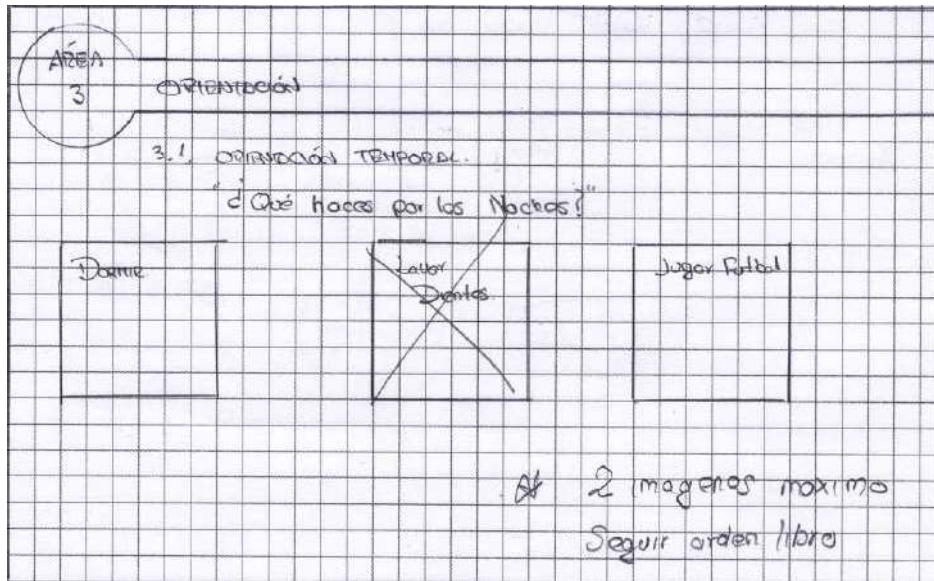 ÁREA
3
ORIENTACIÓN
3.1. ORIENTACIÓN TEMPORAL.
"¿Qué haces por las Noches?"
Dormir
Lavar
Dientes
Jugar Futbol
* 2 imagenes maximo
Seguir orden libro